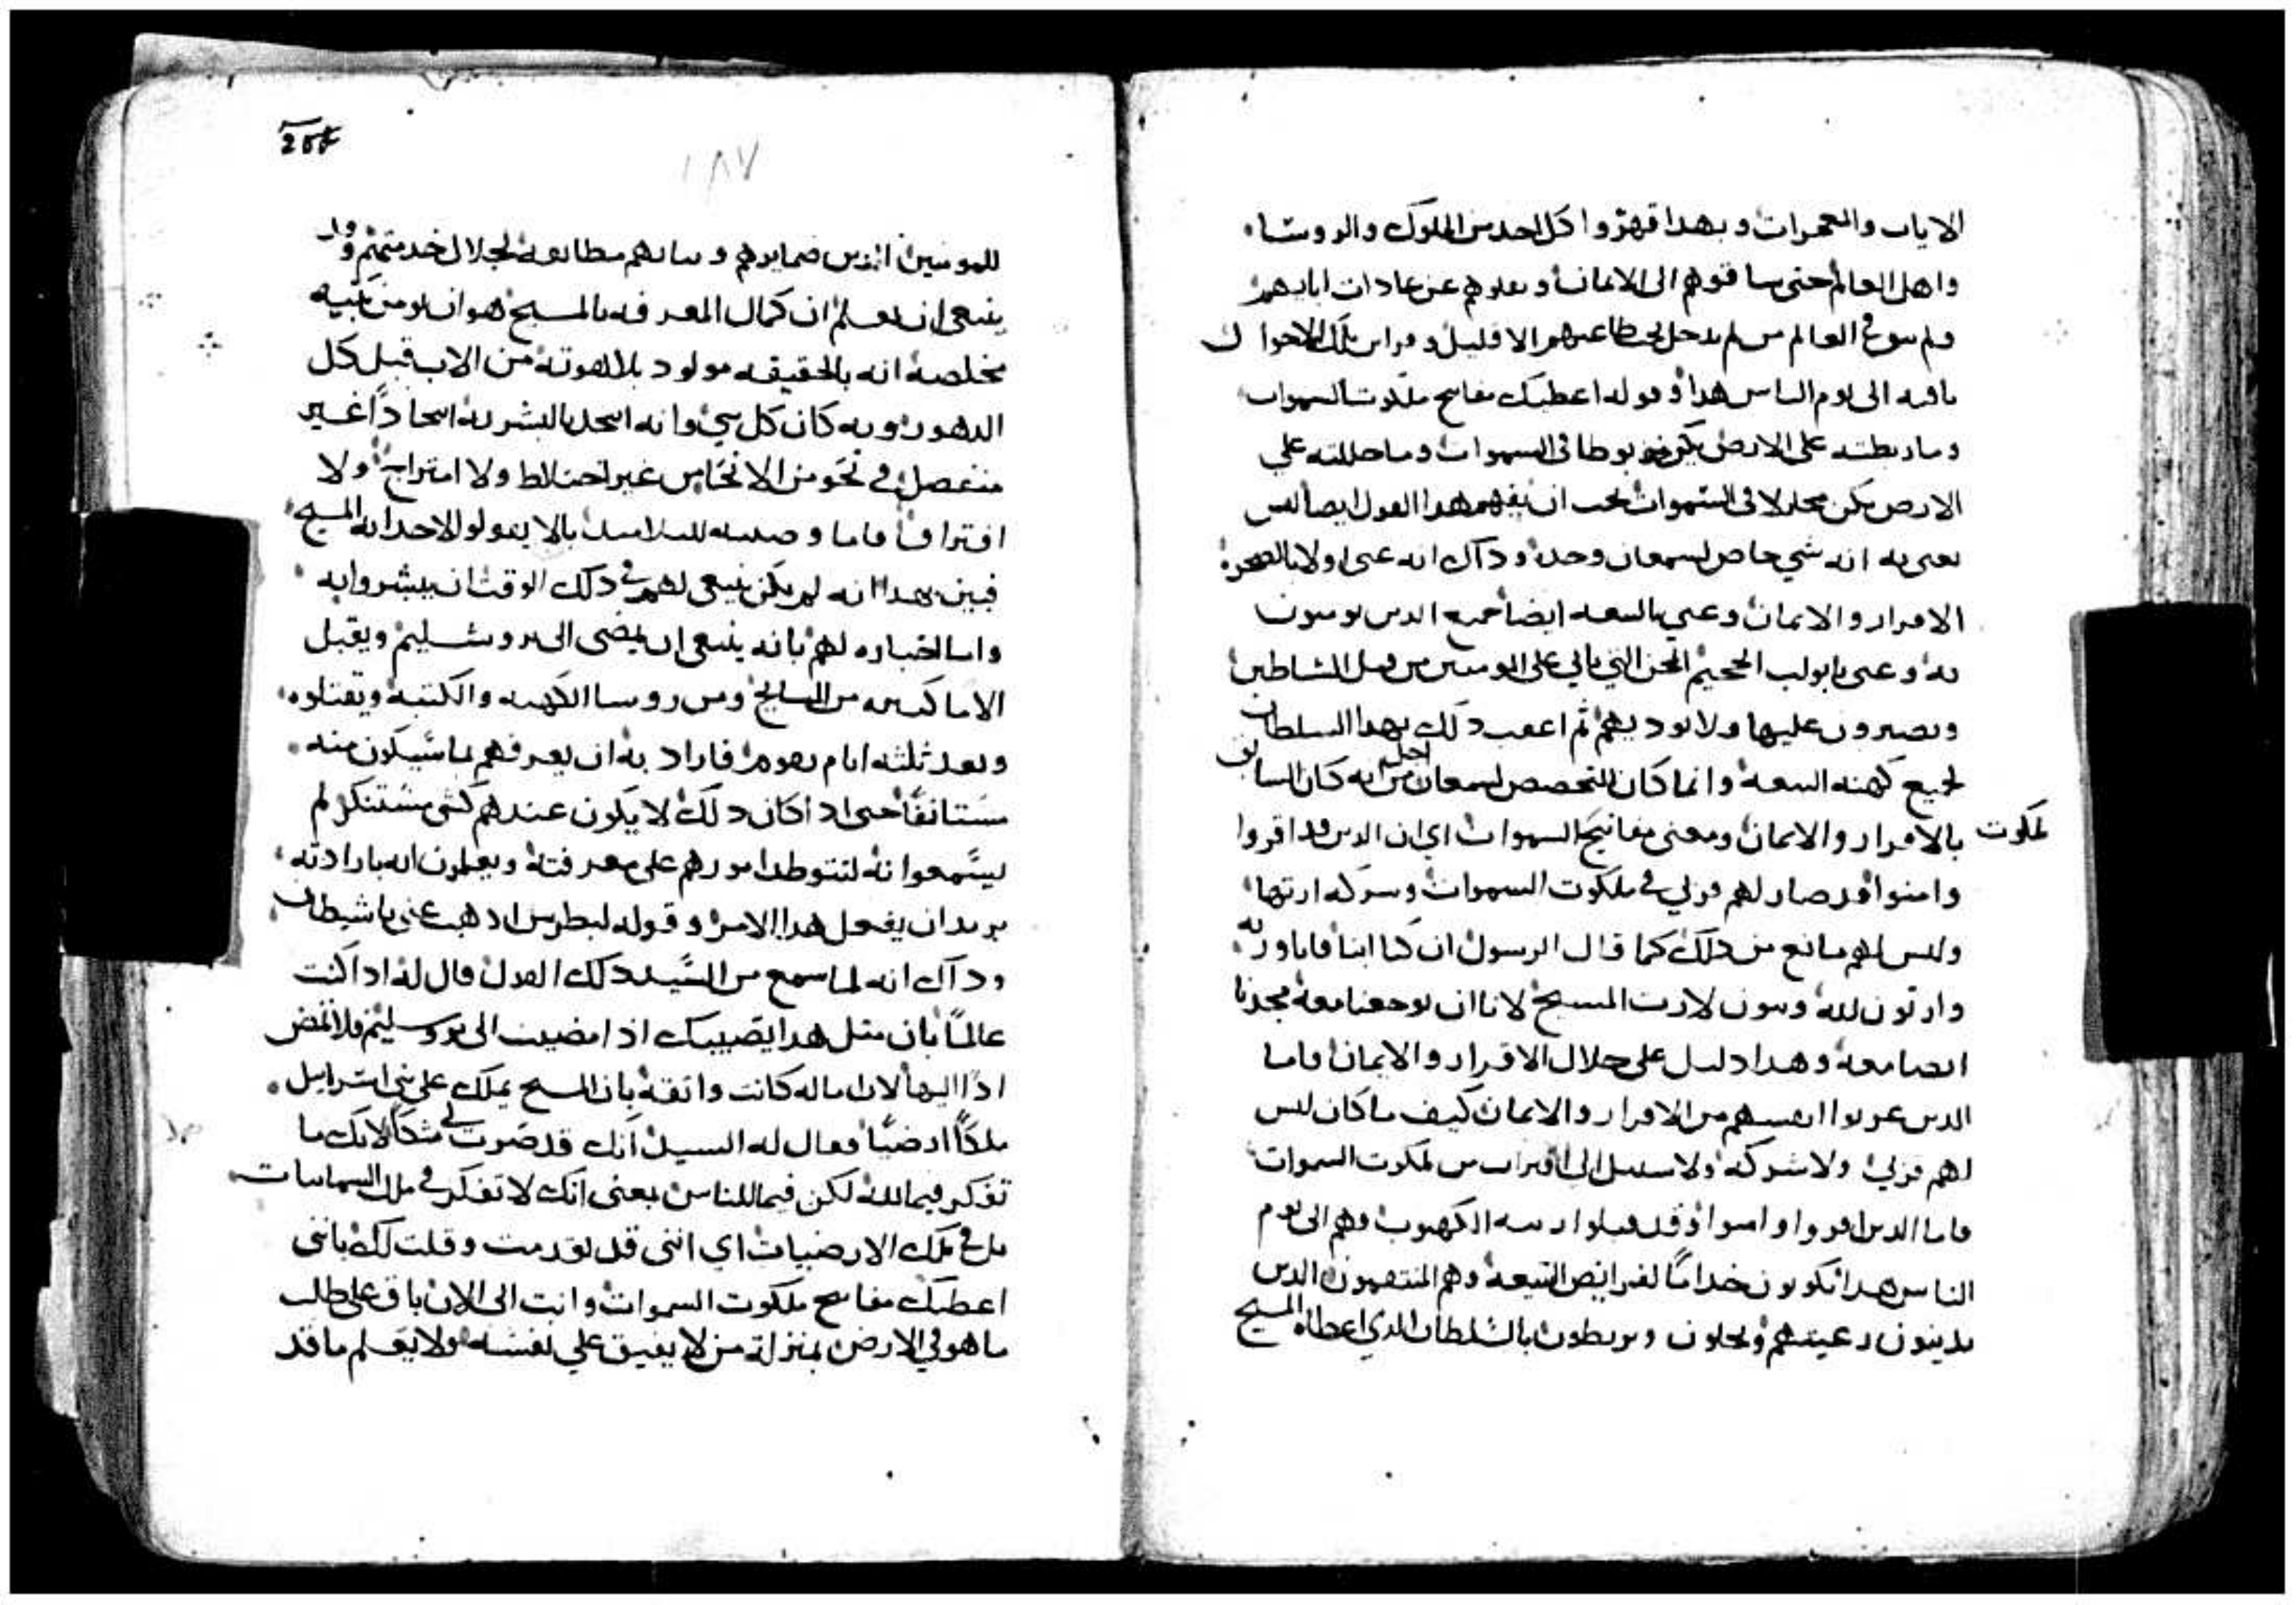 الايات والمعجزات وبهدا قهروا كل احد من الملوك والروسا
واهل العالم حتى ساقوهم الى الايمان ونقلوهم عن عادات ابايهم
ولم يبق في العالم من لم يدخل تحت طاعتهم الا قليل وقراين تلك الاحوال
باقيه الى يوم الناس هدا وقوله اعطيك مفاتيح ملكوت السموات
وما ربطته على الارض يكون مربوطا في السموات وما حللته علي
الارض يكن محلولا في السموات يجب ان يفهم هدا القول ايضا ليس
يعني به انه شي خاص لسمعان وحده وداك انه عنى اولا بالصخره
الاقرار والايمان وعني بالبيعه ايضا جميع الدين يومنون
به وعنى بابواب الجحيم المحن التي تاتي على المومنين من قبل الشياطين
ويصبرون عليها ولا توديهم ثم اعقب دلك بهدا السلطان
لجميع كهنه البيعه وانما كان التخصص لسمعان من اجل انه كان السابق
بالاقرار والايمان ومعنى مفاتيح السموات اي ان الدين قد اقروا
ملكوت
وامنوا قد صار لهم قربي في ملكوت السموات وشركه ارتها
وليس لهم مانع من دلك كما قال الرسول ان كنا ابنا فانا ورثه
وارثون لله وبنون لارث المسيح لانا ان توجعنا معه مجدنا
ايضا معه وهدا دليل على جلال الاقرار والايمان فاما
الدين عزلوا انفسهم من الاقرار والايمان كيف ما كان ليس
لهم قربي ولا شركه ولا سبيل الى اقتراب من ملكوت السموات
فاما الدين اقروا وامنوا وقد قبلوا رتبه الكهنوت وهم الى يوم
الناس هدا يكونون خداما لفرايض البيعه وهم المنتقمون الدين
يدينون رعيتهم ويحلون ويربطون بالسلطان الدي اعطاه المسيح
204
١٨٧
للمومنين الدين ضمايرهم ونياتهم مطابقه لجلال خدمتهم وقد
ينبغي ان يعلم ان كمال المعرفه بالمسيح هو ان يومن بنيه
مخلصه انه بالحقيقه مولود بلاهوته من الاب قبل كل
الدهور وبه كان كل شي وانه اتحد بالبشريه اتحادا غير
منفصل في نحو من الانحا من غير اختلاط ولا امتزاج ولا
افتراق فاما وصيته للتلاميد بالا يقولوا لاحد انه المسيح
فبين بهدا انه لم يكن ينبغي لهم في دلك الوقت ان يبشروا به
واما اخباره لهم بانه ينبغي ان يمضى الى يروشليم ويقبل
الاما كثيره من المشايخ ومن روسا الكهنه والكتبه ويقتلوه
وبعد ثلثه ايام يقوم فاراد به ان يعرفهم بما سيكون منه
مستانفا حتى ادا كان دلك لا يكون عندهم كشى مستنكر لم
يسمعوا به لتتوطد امورهم على معرفته ويعلمون انه بارادته
يريد ان يفعل هدا الامر وقوله لبطرس ادهب عني يا شيطان
وداك انه لما سمع من السيد دلك القول قال له ادا كنت
عالما بان مثل هدا يصيبك اذا مضيت الى يروسليم فلا تمض
ادا اليها لان اماله كانت واثقه بان المسيح يملك على بني اسرايل
ملكا ارضيا فقال له السيد انك قد صرت لي مشككا لانك ما
تفكر فيما لله لكن فيما للناس يعنى انك لا تفكر في ملك السمايات
بل في ملك الارضيات اي انني قد تقدمت وقلت لك بانني
اعطيك مفاتيح ملكوت السموات وانت الى الان باق على طلب
ما هو في الارض بمنزلة من لا يفيق علي نفسه ولا يعلم ما قد